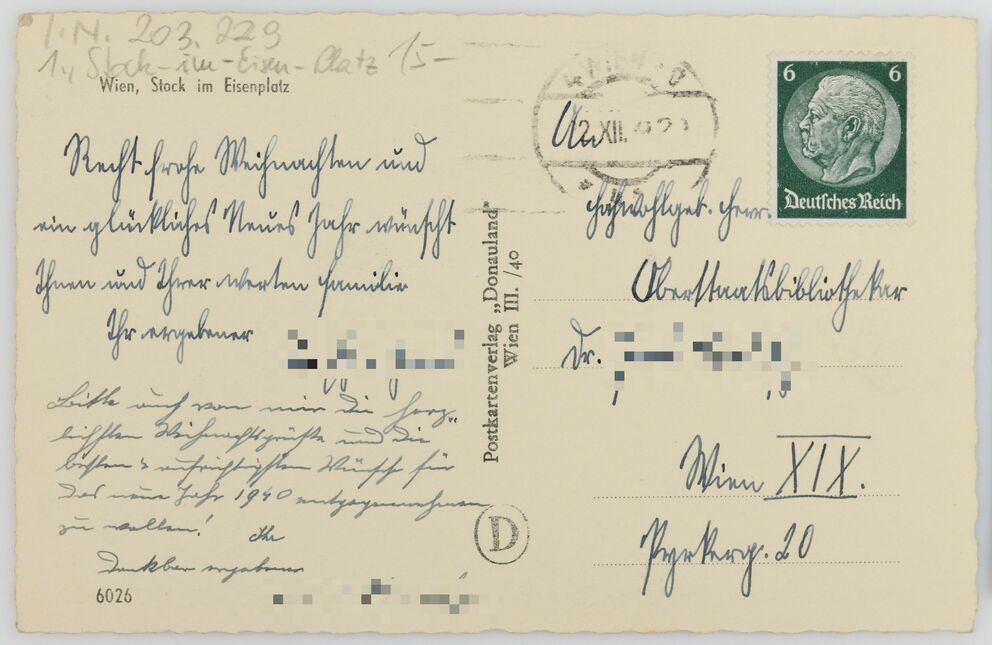 I.N. 203.229
1., Stock-im-Eisen-Platz 15-
Wien, Stock im Eisenplatz
Recht frohe Weihnachten und
ein glückliches Neues Jahr wünscht
Ihnen und Ihrer werten Familie
Ihr ergebener
Bitte auch von mir die herz-
lichsten Weihnachtsgrüße und die
besten & aufrichtigsten Wünsche für
das neue Jahr 1940 entgegennehmen
zu wollen! Ihr
dankbar ergebener
6026
Postkartenverlag „Donauland“
Wien III. /40
D
WIEN
2.XII.
An
6 6
Deutsches Reich
Hochwohlgeb. Herr.
Oberstaatsbibliothekar
Dr.
Wien XIX.
Pyrkerg. 20